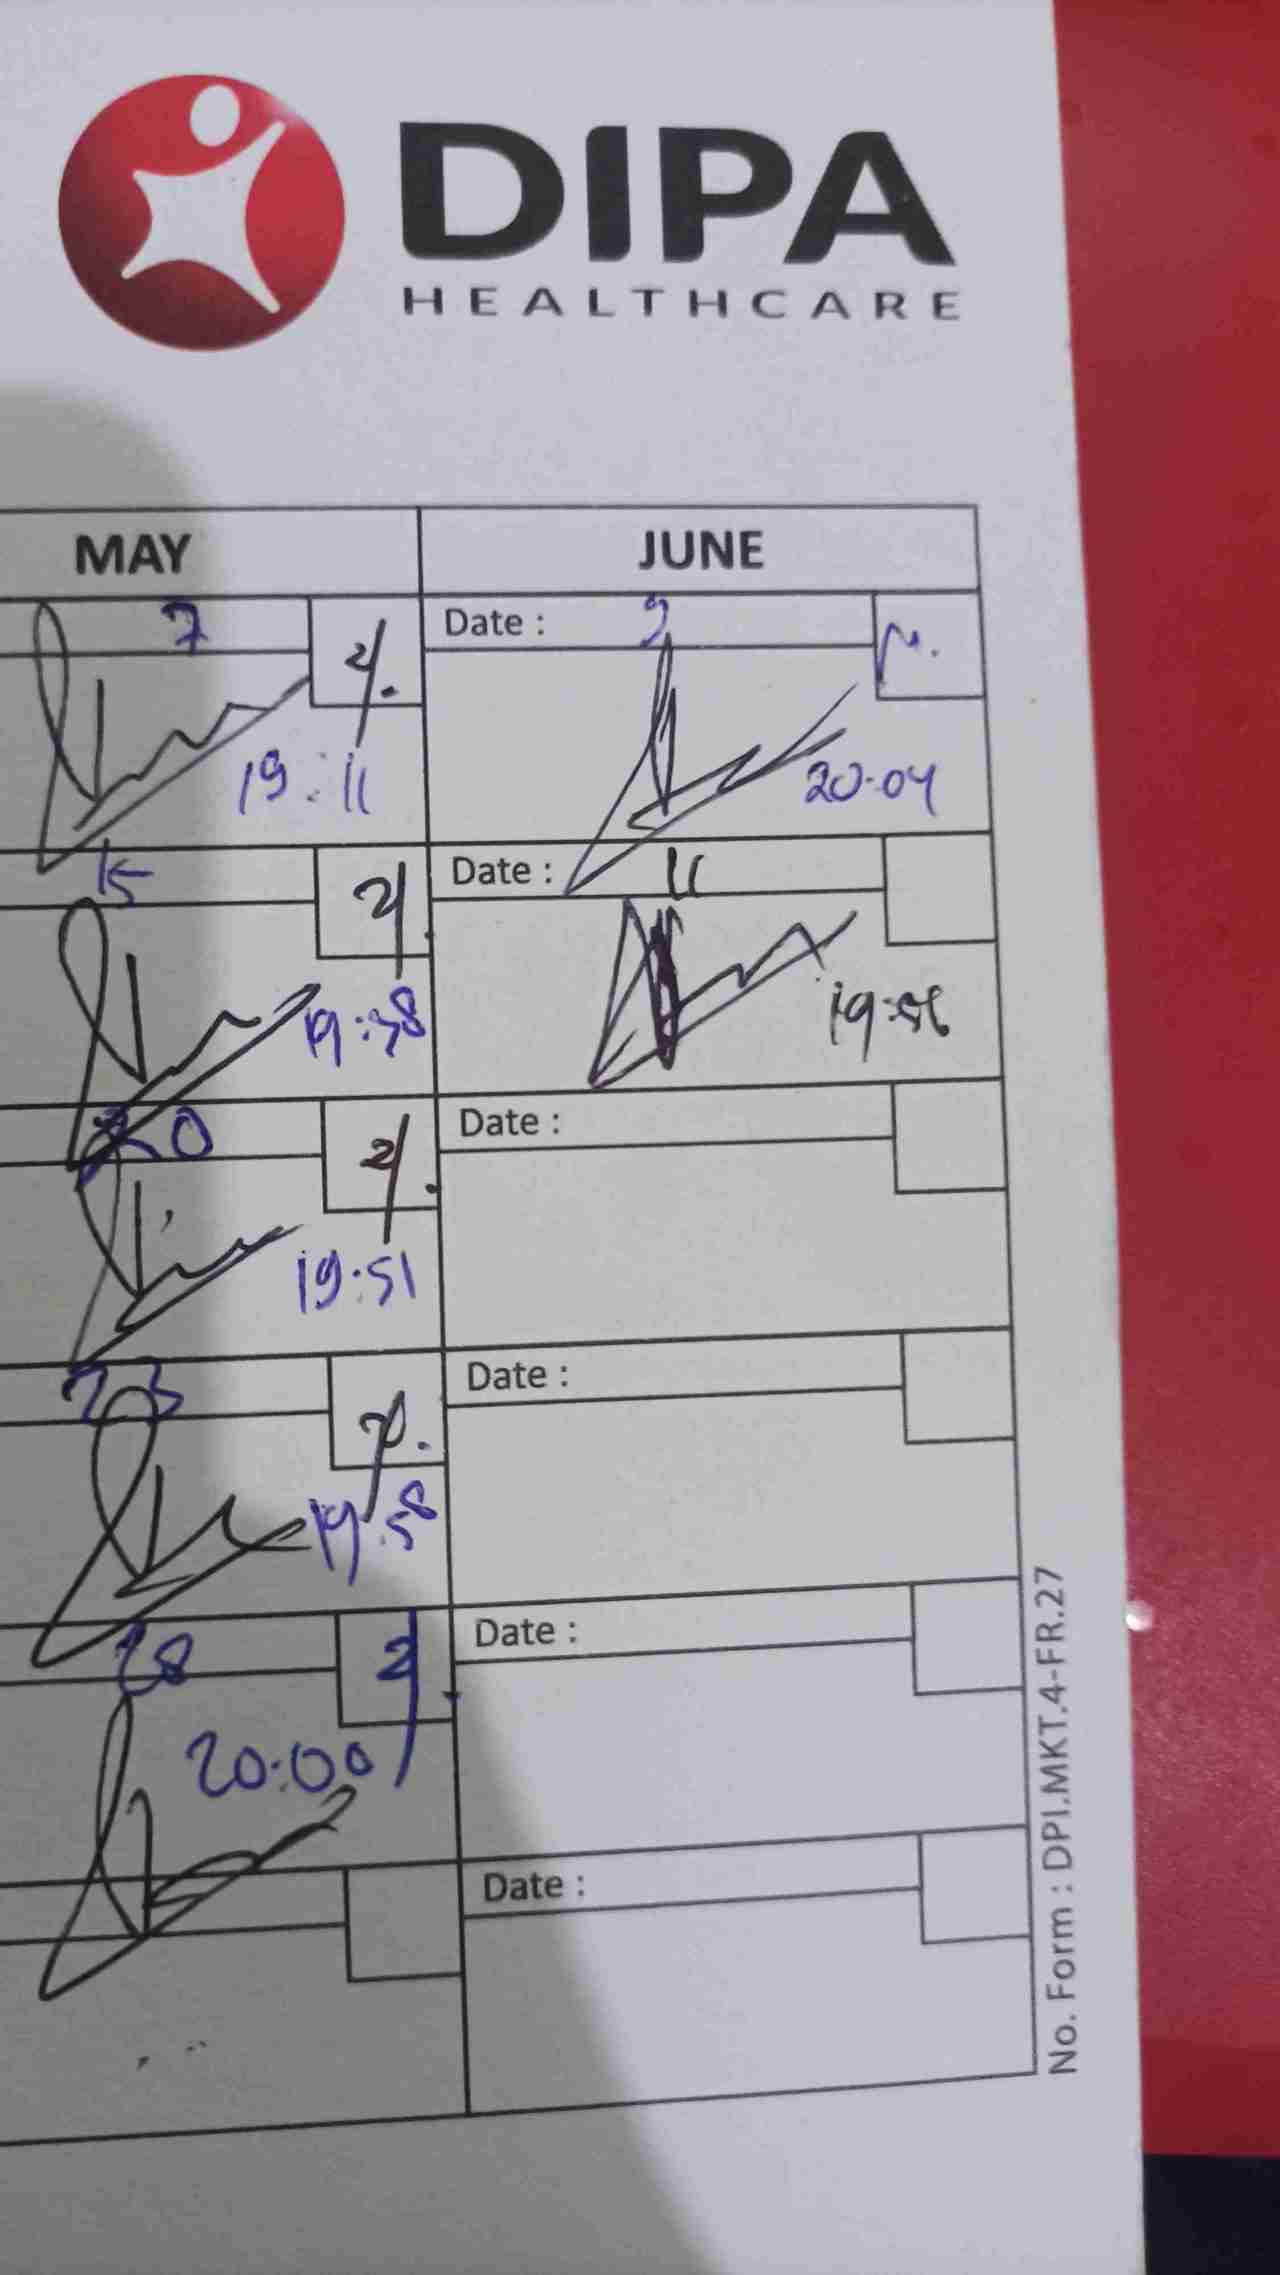 DIPA
HEALTHCARE
MAY JUNE
7 Date : 9
19:11 20.04
15 Date : 11
19:38 19:56
20 Date :
19:51
23 Date :
19:58
28 Date :
20:00
Date :
No. Form : DPI.MKT.4-FR.27